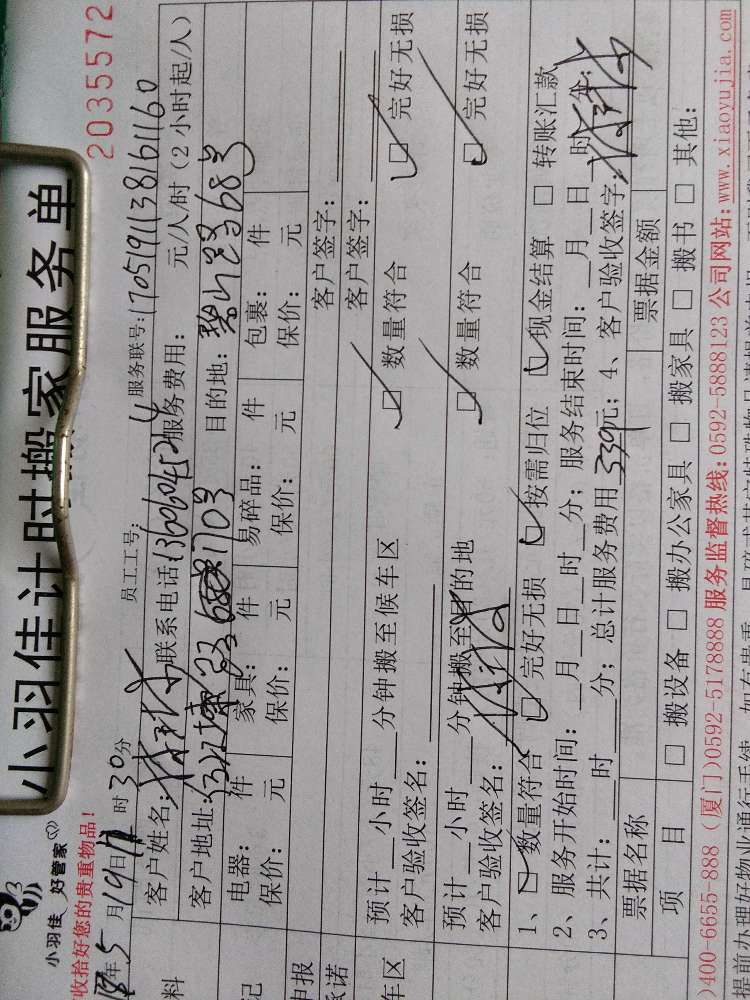 小羽佳计时搬家服务单
2035572
小羽佳 好管家
收拾好您的贵重物品!
年5月19日11时30分 员工工号: 服务联号:1705191138161160
客户姓名: 联系电话 服务费用: 元/人/时(2小时起/人)
客户地址: 703 目的地:碧山路68号
电器: 件 家具: 件 易碎品: 件 包裹: 件
保价: 元 保价: 元 保价: 元 保价: 元
客户签字:
客户签字:
预计 小时 分钟搬至候车区 数量符合 完好无损
客户验收签名:
预计 小时 分钟搬至目的地 数量符合 完好无损
客户验收签名:
1、 数量符合 完好无损 按需归位 现金结算 转账汇款
2、服务开始时间: 月 日 时 分; 服务结束时间: 月 日 时 分;
3、共计: 时 分; 总计服务费用339元; 4、客户验收签字:
票据名称 票据金额
项 目 搬设备 搬办公家具 搬家具 搬书 其他:
)400-6655-888 (厦门)0592-5178888 服务监督热线:0592-5888123 公司网站:www.xiaoyujia.com
提前办理好物业通行手续